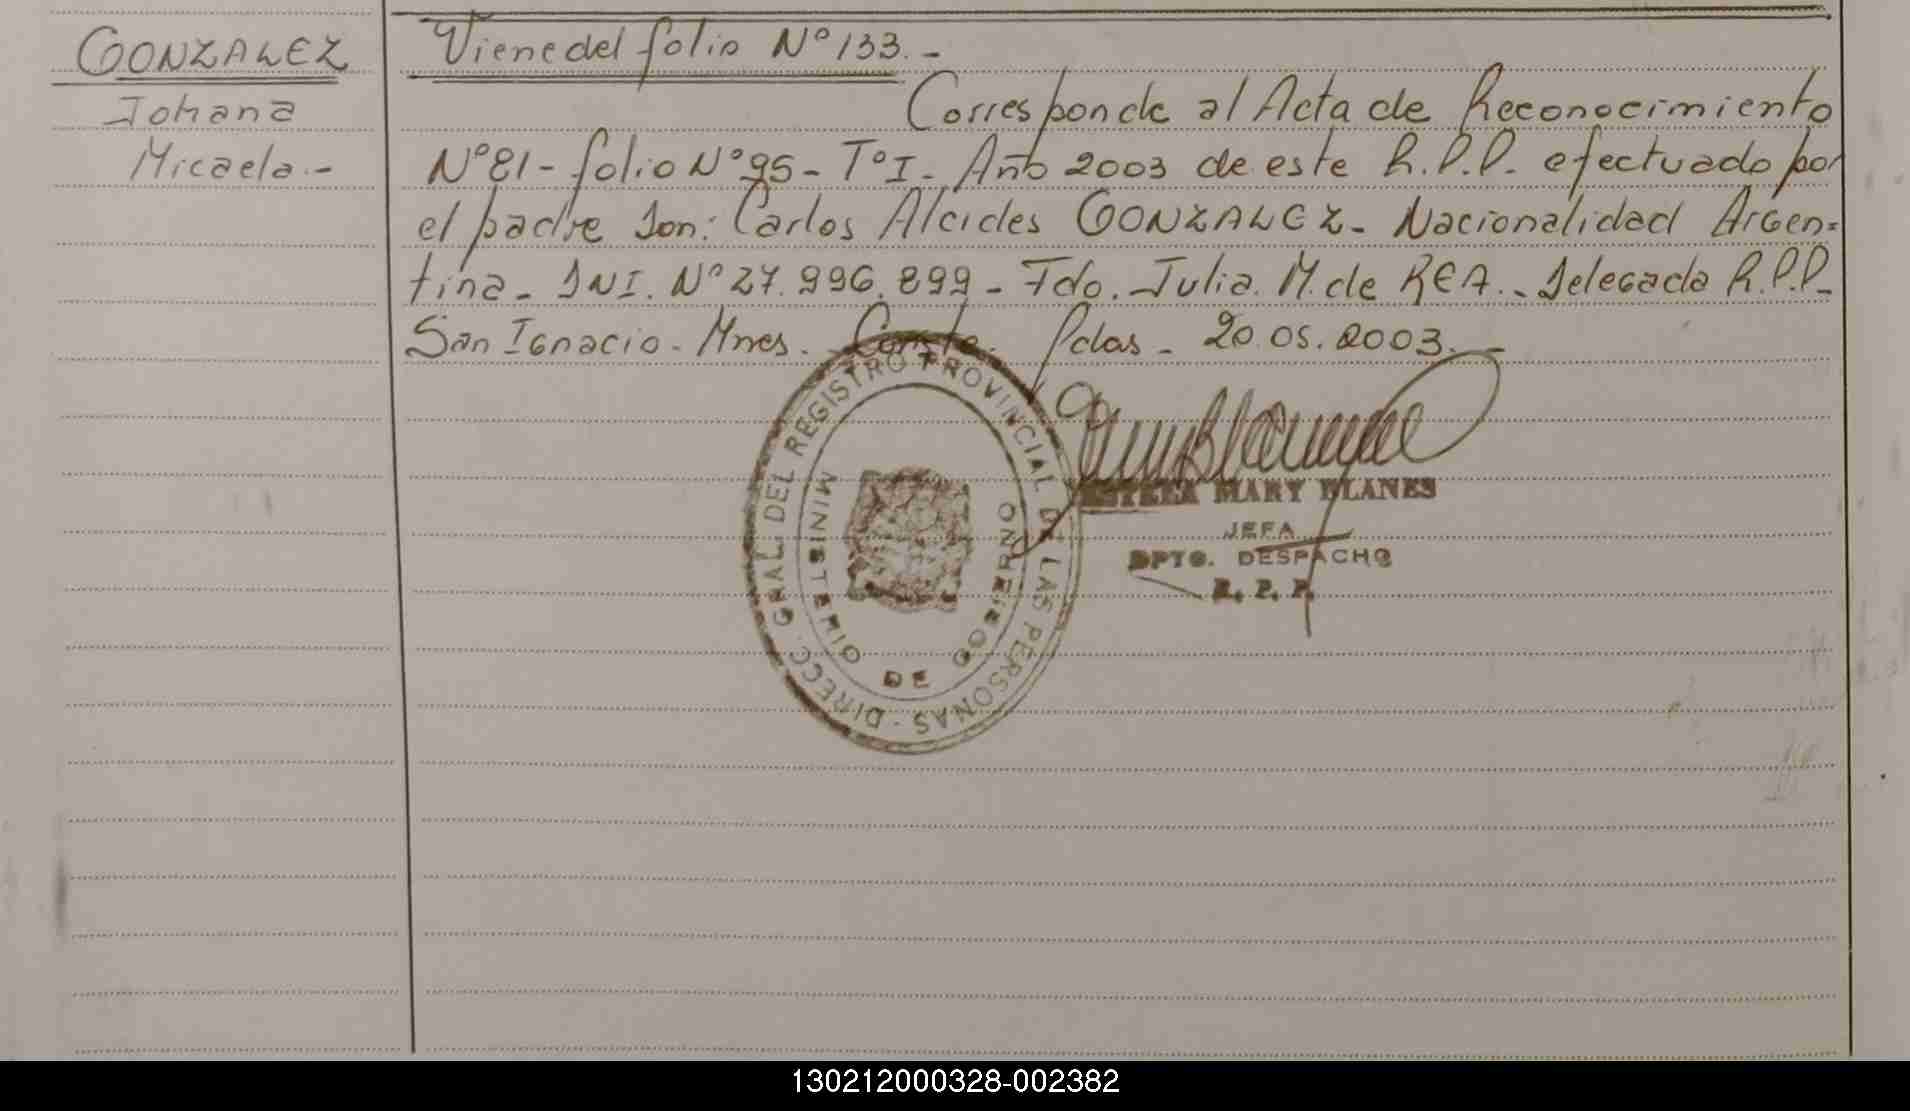 GONZALEZ
Johana
Micaela.-
Viene del folio Nº 133.-
Corresponde al Acta de Reconocimiento
Nº 81- folio Nº 95- Tº I- Año 2003 de este R.P.P. efectuado por
el padre Don: Carlos Alcides GONZALEZ- Nacionalidad Argen=
tina- DNI. Nº 27.996.899- Fdo. Julia. M. de REA.- Delegada R.P.P-
San Ignacio- Mnes. Pdas- 20.05.2003.-
DIRECC. GRAL. DEL REGISTRO PROVINCIAL DE LAS PERSONAS -
MINISTERIO DE GOBIERNO
MARY BLANES
JEFA
DPTO. DESPACHO
R. P. P.
130212000328-002382